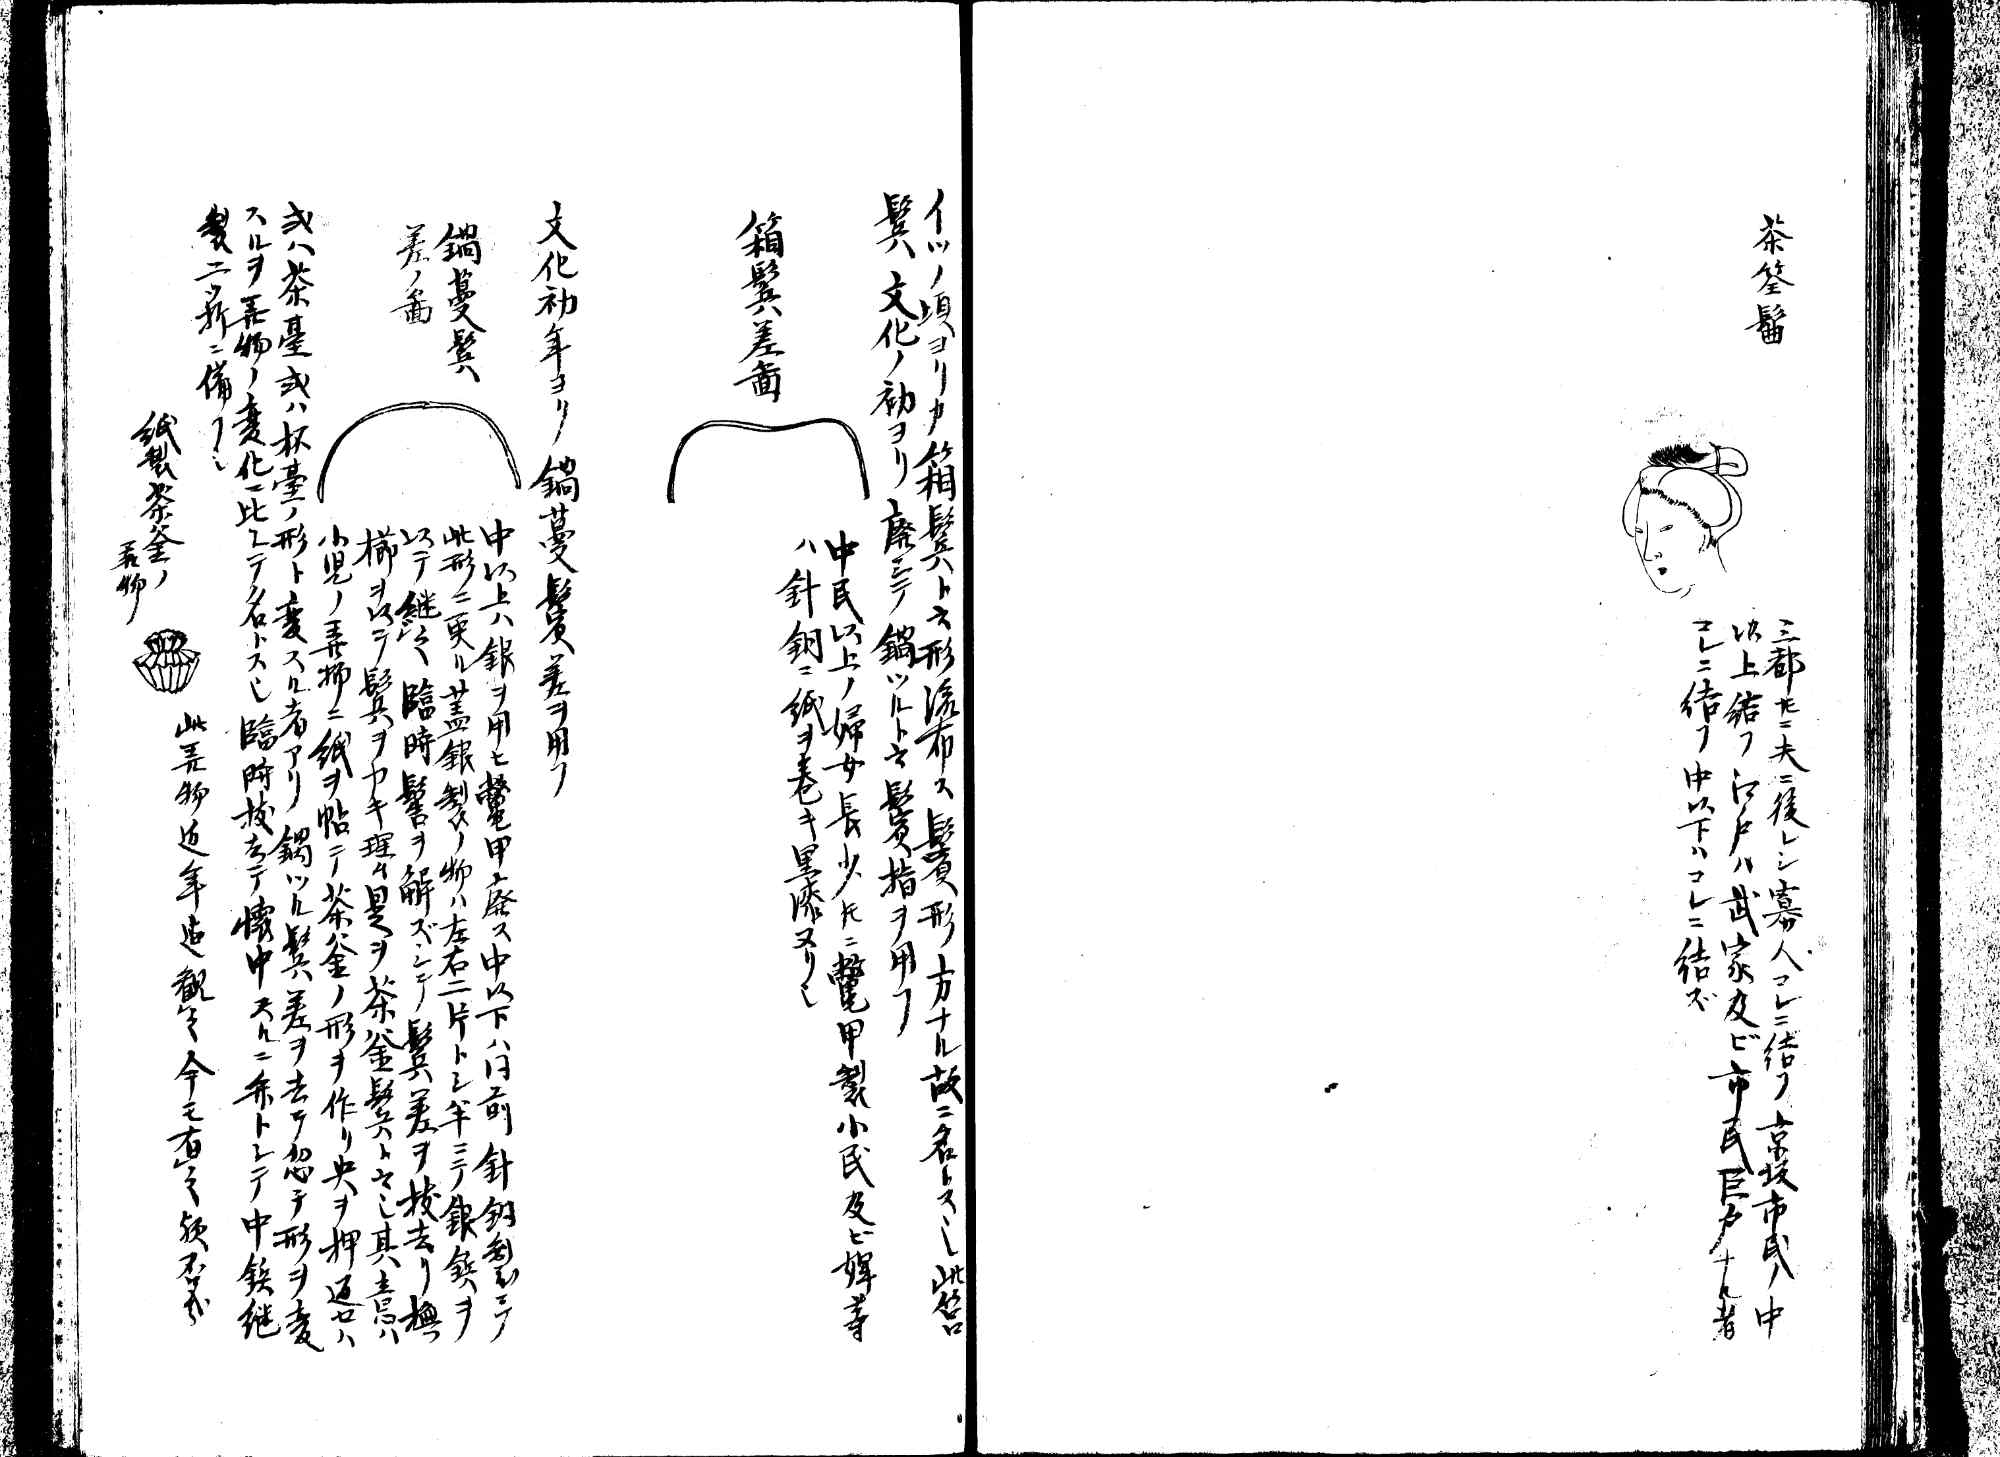 茶筌髷
三都トモニ夫ニ後レシ寡人コレニ結フ京坂市民ノ中
以上結フ江戸ハ武家及ビ市民巨戸ナル者
コレニ結フ中以下ハコレニ結ズ
イツノ頃ヨリカ箱鬂ト云形流布ス鬢形方ナル故ニ名トス也此箱
鬂文化ノ初ヨリ廃シテ鍋ツルト云鬢指ヲ用フ
箱鬂差啚
中民以上ノ婦女長少トモニ鼈甲製小民及ビ婢等
ハ針銅ニ紙ヲ巻キ黒漆ヌリ也
文化初年ヨリ鍋蔓鬢差ヲ用フ
鍋蔓鬂
差ノ啚
中以上ハ銀ヲ用ヒ鼈甲廃ス中以下ハ同前針銅製ニテ
此形ニ更ル蓋銀製ノ物ハ左右二片トシ半ニテ銀鋲ヲ
以テ継之臨時髻ヲ解ズシテ鬂差ヲ抜去リ撫
櫛ヲ以テ鬂ヲカキ理ム是ヲ茶釜鬂ト云也其意ハ
小児ノ弄物ニ紙ヲ帖テ茶釜ノ形ヲ作リ央ヲ押返セハ
或ハ茶臺或ハ杯臺ノ形ト変スル者アリ鍋ツル鬂差ヲ去テ忽チ形ヲ変
スルヲ弄物ノ変化ニ比シテ名トス也臨時抜去テ懐中スルニ弁トシテ中鋲継
製二ツ折ニ備フ也
紙製茶釜ノ
弄物
此弄物近年迄観之今モ有之候哉